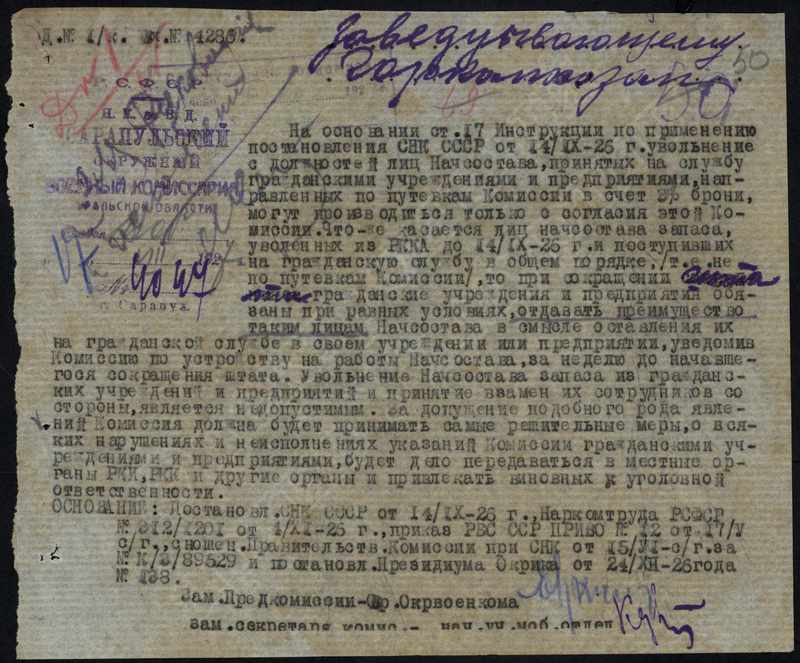 Д.№ 1/к. вх.№ 4286.
Заведцывающему
Горколхозан.
50
50
С.Ф.С.Р.
Н.К.В.Д.
САРАПУЛЬСКИЙ
ОКРУЖНЫЙ
ВОЕННЫЙ КОМИССАРИАТ
УРАЛЬСКОЙ ОБЛАСТИ
192
№ 4047
г. Сарапул.
На основании ст.17 Инструкции по применению
постановления СНК СССР от 14/IX-26 г.увольнение
с должностей лиц Начсостава,принятых на службу
гражданскими учреждениями и предприятиями,нап-
равленных по путевкам Комиссии в счет 2% брони,
могут производиться только с согласия этой Ко-
миссии.Что-же касается лиц начсостава запаса,
уволенных из РККА до 14/IX-26 г.и поступивших
на гражданскую службу в общем порядке,/т.е.не
по путевкам Комиссии/,то при сокращении
гражданские учреждения и предприятия обя-
заны при равных условиях,отдавать преимущество
таким лицам Начсостава в смысле оставления их
на гражданской службе в своем учреждении или предприятии,уведомив
Комиссию по устройству на работы Начсостава,за неделю до начавше-
гося сокращения штата. Увольнение Начсостава запаса из гражданс-
ких учреждений и предприятий и принятие взамен их сотрудников со
стороны,является недопустимым. За допущение подобного рода явле-
ний Комиссия должна будет принимать самые решительные меры,о вся-
ких нарушениях и неисполнениях указаний Комиссии гражданскими уч-
реждениями и предприятиями,будет дело передаваться в местные ор-
ганы РКИ,РКК и другие органы и привлекать виновных к уголовной
ответственности.
ОСНОВАНИЕ: Постановл.СНК СССР от 14/IX-26 г.,Наркомтруда РСФСР
№ 312/1201 от 4/XI-26 г.,приказ РВС ССР ПРИВО № 12 от 17/V
с/г.,сношен.Правительств.Комиссии при СНК от 15/VI-с/г.за
№ К/3/89529 и постановл.Президиума Окрика от 24/XII-26года
№ 138.
Зам.Предкомиссии-Вр.Окрвоенкома
Зам.секретаря комис.- нач.уч.моб.отдел